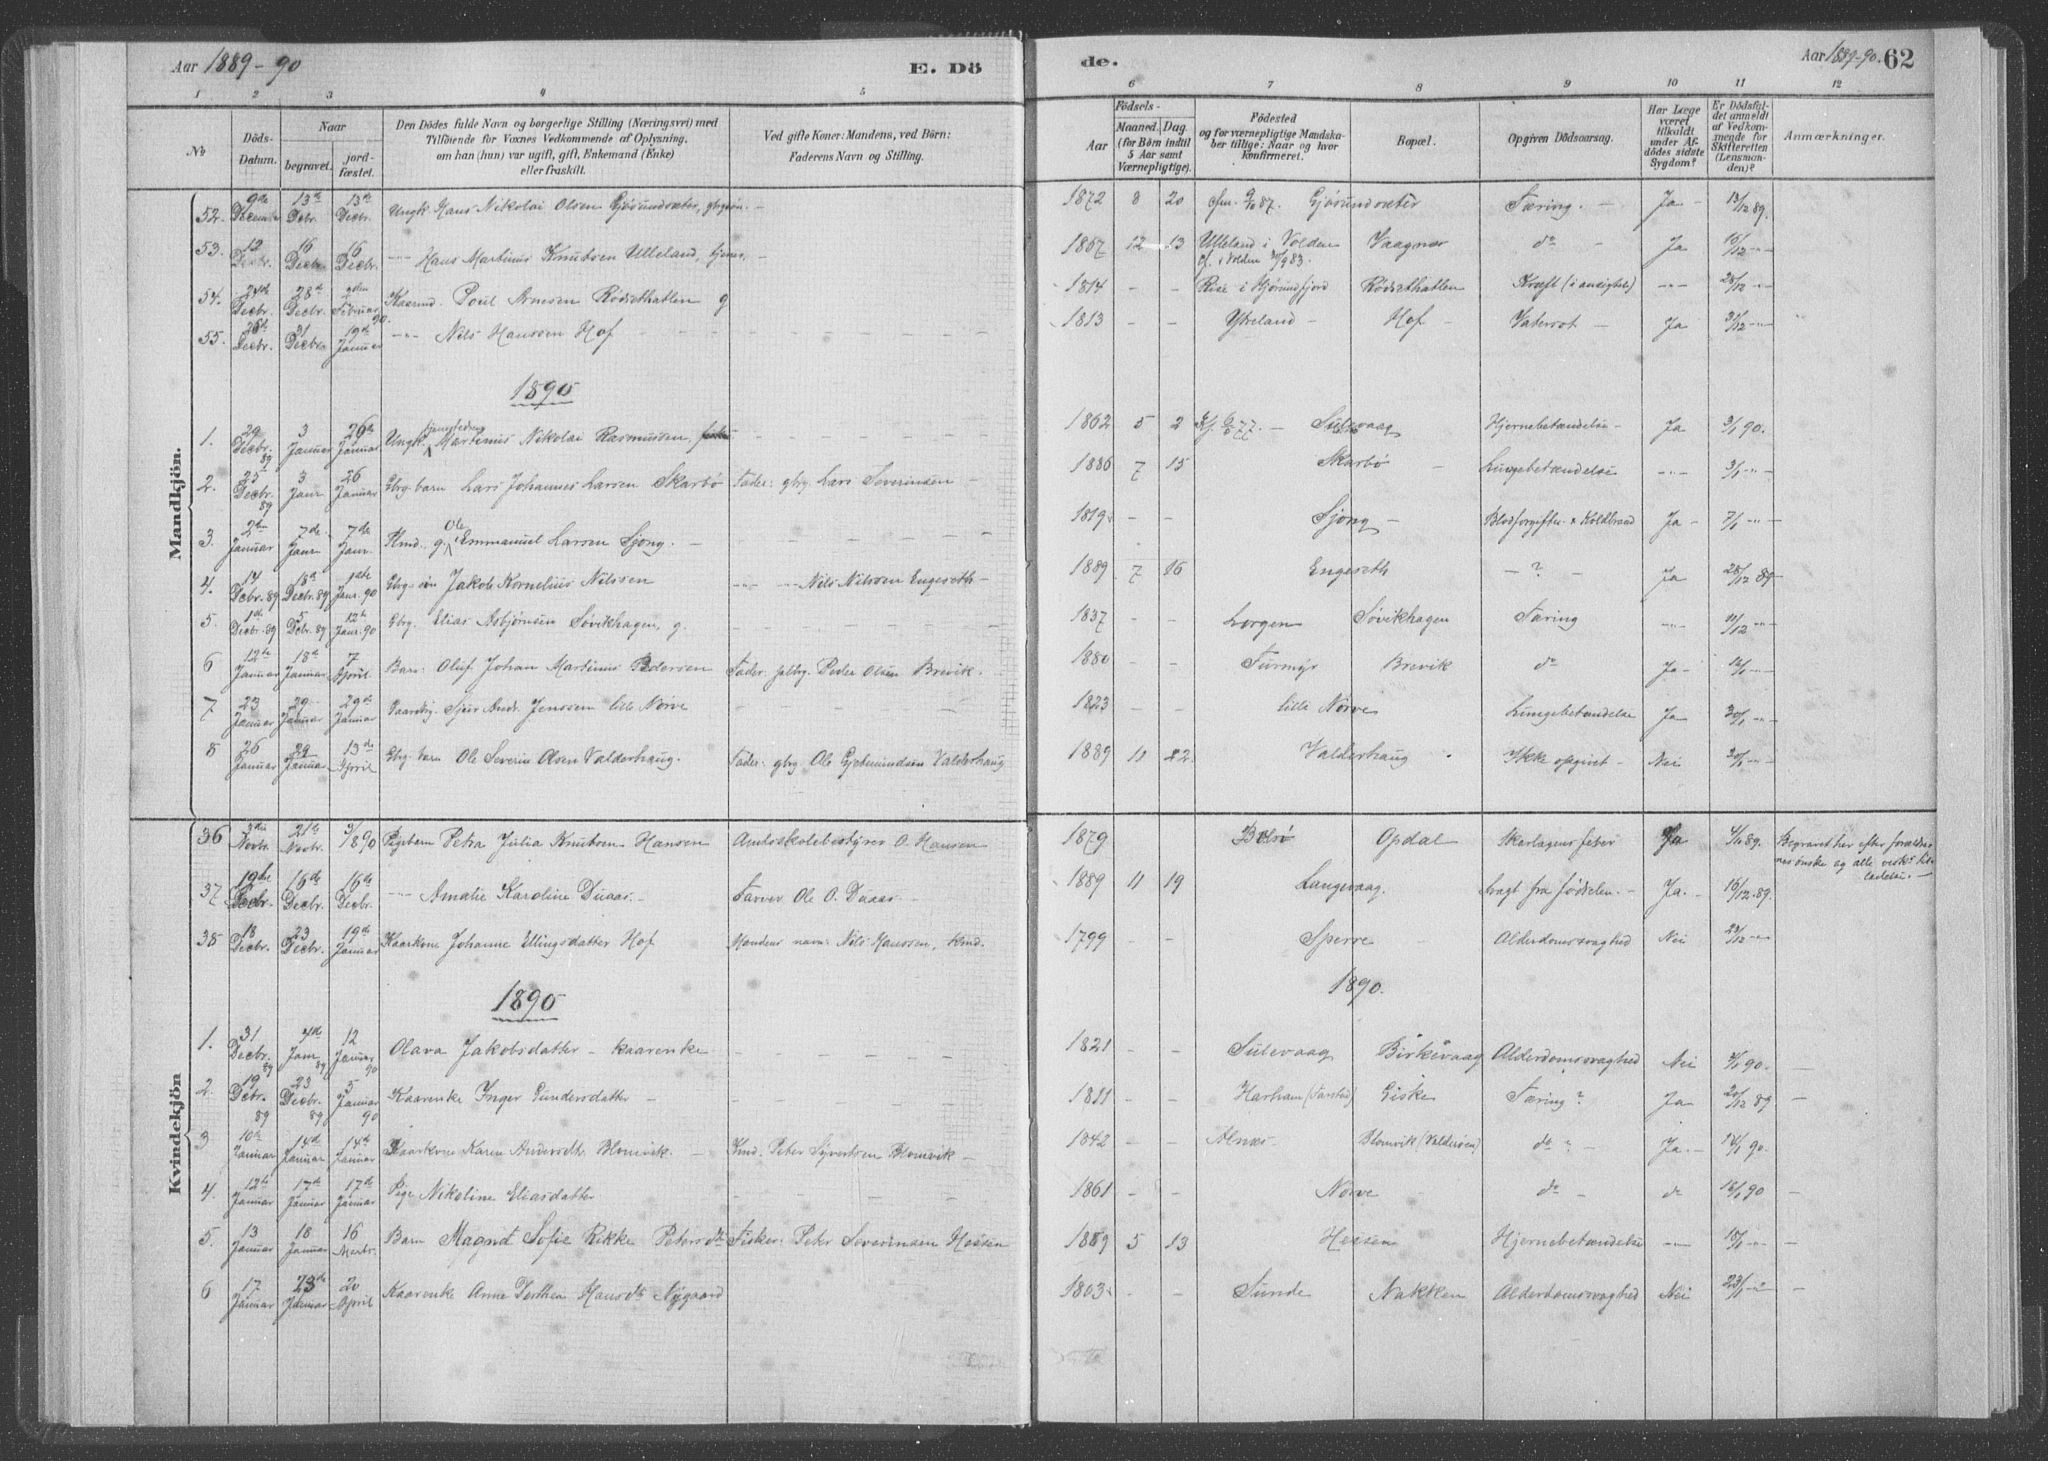 Aar 1889-90
E. Dö
de.
Aar 1889-90. 62
1 2 3 4 5 6 7 8 9 10 11 12
No
Döds-Datum.
Naar
begravet.
jordfæstet.
Den Dödes fulde Navn og borgerlige Stilling (Næringsvei) med
Tilföiende for Voxnes Vedkommende af Oplysning,
om han (hun) var ugift, gift, Enkemand (Enke)
eller fraskilt.
Ved gifte Koner: Mandens, ved Börn:
Faderens Navn og Stilling.
Födsels-
Aar
Maaned. Dag.
(for Börn indtil
5 Aar samt
Værnepligtige).
Födested
og for værnepligtige Mandskaber
tillige: Naar og hvor
konfirmeret.
Bopæl.
Opgiven Dödsaarsag.
Har Læge
været
tilkaldt
under Afdödes
sidste
Sygdom?
Er Dödsfaldet
anmeldt
af Vedkommende
for
Skifteretten
(Lensmanden)?
Anmærkninger.
Mandkjön.
52. 9de December 13de Decbr. 13de Decbr. Ungk. Hans Nikolai Olsen Gjörundsæter, gbrsøn. — 1872 8 20 Gjörundsæter Tæring. — Ja — 13/12 89.
53. 12 Decbr. 16 Decbr. 16 Decbr. —"— Hans Martinus Knutsen Ulleland, — 1867 12 13 Ulleland i Volden Vaagnæs do — Ja 16/12 —"—
54. 24de Decbr. 28de Decbr. 2den Februar 90. Kaarmd. Poul Arnesen Rødsethatlen g 1814 — — Rise i Hjörundfjord Rødsethatlen Kræft (i ansigtet) —"— 28/12 —"—
55. 26de Decbr. 31 Decbr. 19de Januar —"— Nils Hanssen Hof 1813 — — Ytreland — Hof — Vatersot — Ja 31/12 —"—
1890
1. 29 Decbr. 89 3 Januar 26de Januar Ungk. Martinus Nikolai Rasmussen, 1862 5 2 77. — Sulevaag Hjernebetændelse — Ja 3/1 90.
2. 25 Decbr. 89 3 Janr. 26 Januar Gbrg. barn Lars Johannes Larsen Skarbö Fader: gbrg. Lars Severinsen — 1886 7 15 Skarbö — Lungebetændelse —"— 3/1 —"—
3. 2den Januar 7de Janr. 7de Janr. Kmd. g. Ole Emmanuel Larsen Sjong. — 1819 — — Sjong — Blodforgiftn. & Koldbrand Ja — 7/1 —"—
4. 14 Decbr. 89 18de Decbr. 89 1ste Janr. 90 Gbrg. søn Jakob Kornelius Nilssen —"— —"— Nils Nilssen Engeseth — 1889 7 16 Engeseth — ? — Ja 28/12 89
5. 1de Decbr. 89 5 Decbr. 89 12te Janr. 90 Gbrg. Elias Asbjørnsen Søvikhagen, g. 1837 — — Lorgen Søvikhagen Tæring —"— 11/12 —"—
6 12te Januar 18de Januar 7 April Barn: Oluf Johan Martinus Pedersen Fader: Peder Olsen Brevik. 1880 — — Furmyr Brevik do Ja —"—
7 23 Januar 29 Januar 29de Januar Sjur Andr. Jenssen lille Nørve 1823 lille Nørve Lungebetændelse Ja 30/1 —"—
8 26 Januar 29 Januar 13de April Gbrg. barn Ole Severin Olsen Valderhaug. Fader: gbrg. Ole Gjetmundsen Valderhaug 1889 11 22 Valderhaug Ikke opgivet — Nei 30/1 —"—
Kvindekjön
36 3die Novbr. 21de Novbr. 3/1 890 Pigebarn Petra Julia Knutsen Hansen Amtsskolebestyrer O. Hansen 1879 Bolsö Opdal Skarlagensfeber Ja 4/11 89. Begravet her efter forældrenes önske og
37 12te Decbr. 16de Decbr. 16de Decbr. —"— Amalie Karoline Duaas. Farver Ole O. Duaas — 1889 11 19 Langevaag. Svagt fra fødselen. — Ja. — 16/12 89.
38 18 Decbr. 23 Decbr. 19de Januar Kaarkone Johanne Ellingsdatter Hof Mandens navn: Nils Hanssen, kmd. 1799 — — Sperre Alderdomssvaghed Nei 23/12 —"—
1890 1890.
1. 31 Decbr. 89 4de Janr. 89 12 Januar 90 Olava Jakobsdatter — kaarenke 1821 — — Sulevaag Birkevaag Alderdomssvaghed Nei 4/1 90.
2. 19 Decbr. 89 23 Decbr. 89 5 Januar 90 Kaarenke Inger Gundersdatter — 1811 — — Harham Giske Tæring? Ja 20/12 89 —
3 10de Januar 14de Januar 14de Januar Kaarkone Karen Andersdtr. Blomvik. — Kmd. Peter Syvertsen Blomvik — 1842 — — Alnæs Blomvik (Valderøen) do ? Ja. — 14/1 90.
4. 12te Januar 17de Januar 17de Januar Pige Nikoline Eliasdatter 1861 — — Nørve do — do 16/1 90 —
5. 13 Januar 18 Januar 16 Marts. Barn Magna Sofie Rikke Petersdtr. Fisker: Peter Severinsen Hessen 1889 5 13 Hessen Hjernebetændelse —"— 18/1 —"— —
6 17 Januar 23de Januar 20 April Kaarenke Anne Dorthea Hansdtr. Nygaard 1803 — — Sunde Nakken Alderdomssvaghed Nei 23/1 —"— —